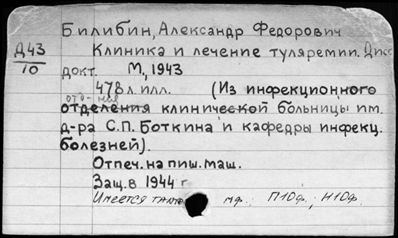 Билибин, Александр Федорович
Д43
10
Клиника и лечение туляремии. Дисс
докт. М., 1943
478 л. илл. (Из инфекционного
отделения клинической больницы им.
д-ра С.П. Боткина и кафедры инфекц.
болезней).
Отпеч. на пиш. маш.
Защ. в 1944 г
Имеется мф. П10ф.; Н10ф.